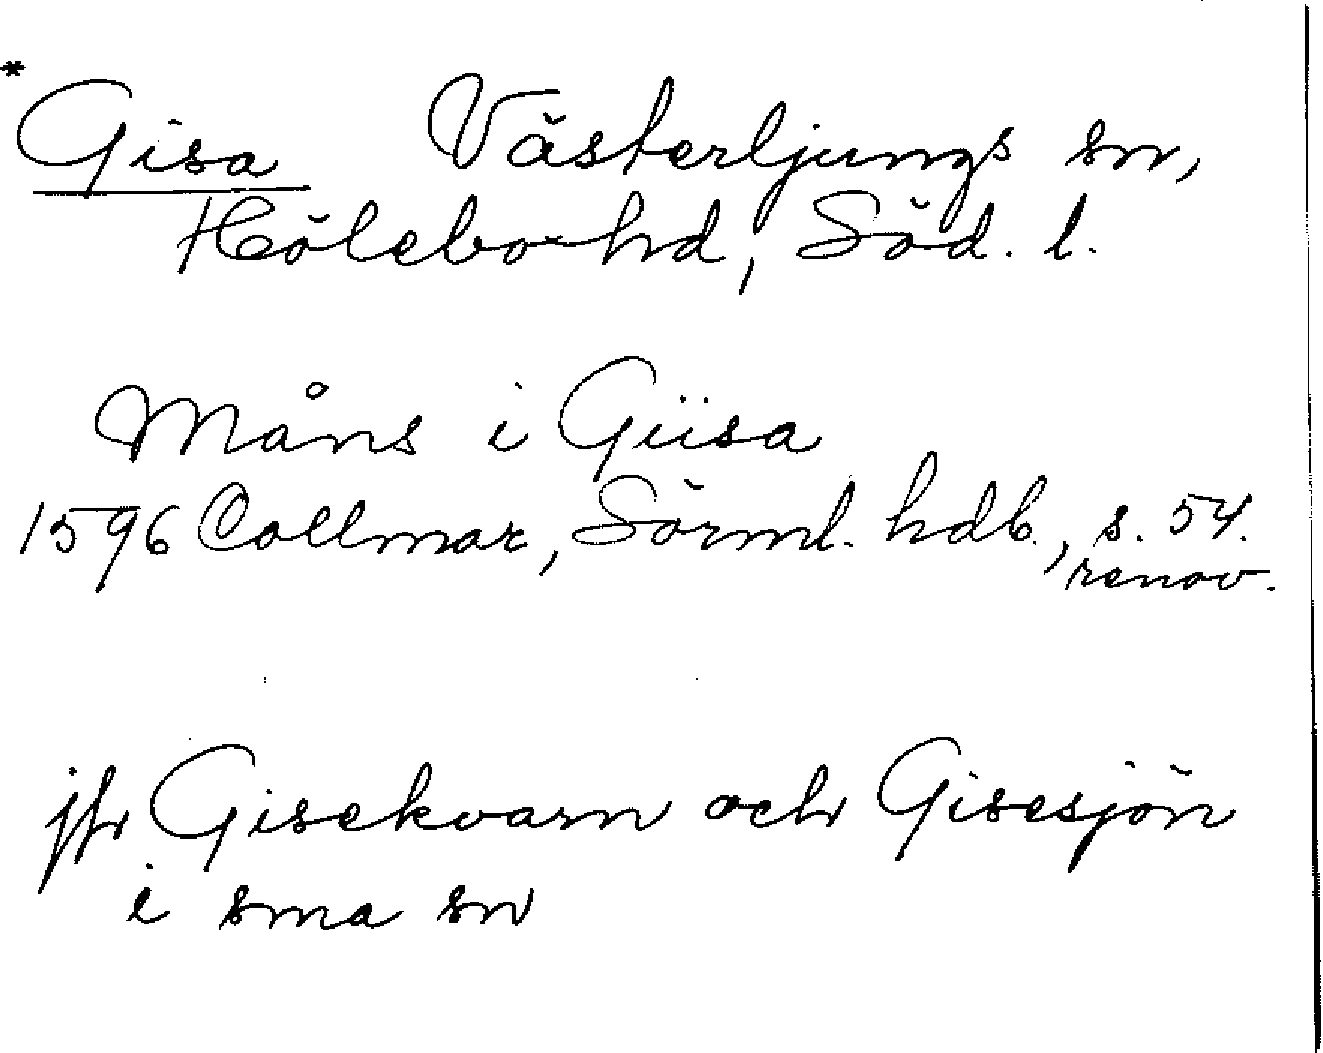 * Gisa Västerljungs sn,
Hölebo hd, Söd. l.
Måns i Giisa
1596 Collmar, Sörml. hdb., s. 54.
renov.
jfr Gisekvarn och Gisesjön
i sma sn